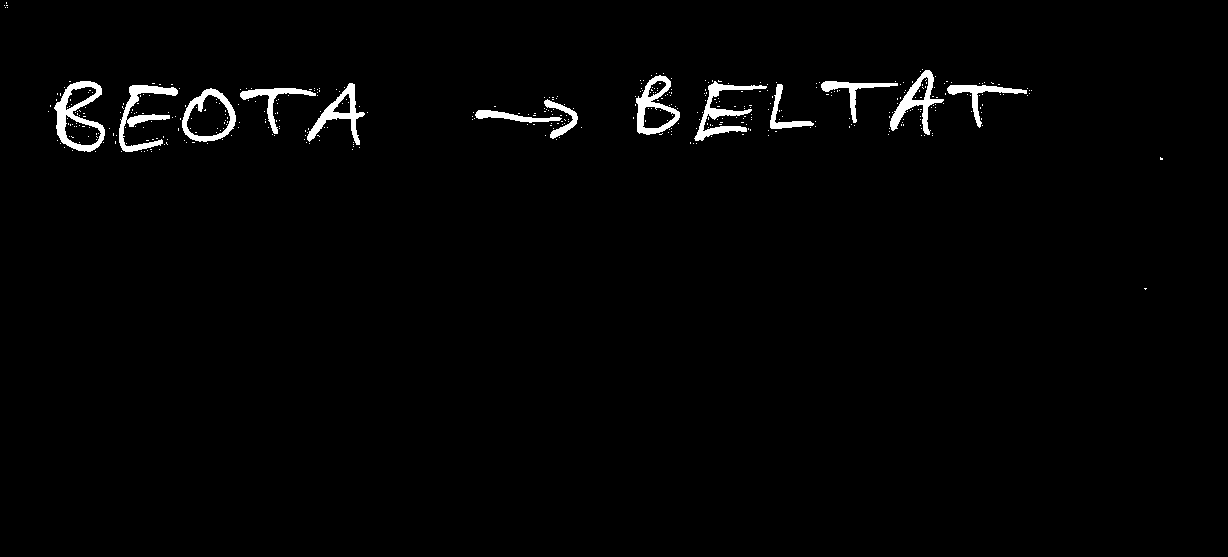 BEOTA → BELTAT